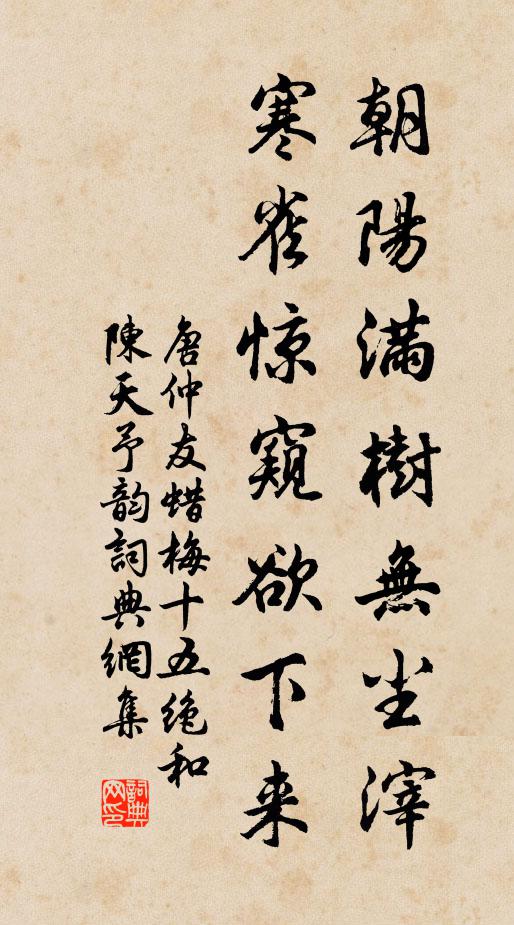 朝陽滿樹無尘滓
寒雀惊窺欲下来
唐仲友蜡梅十五绝和
陳天予韵詞典網集
詞典网印